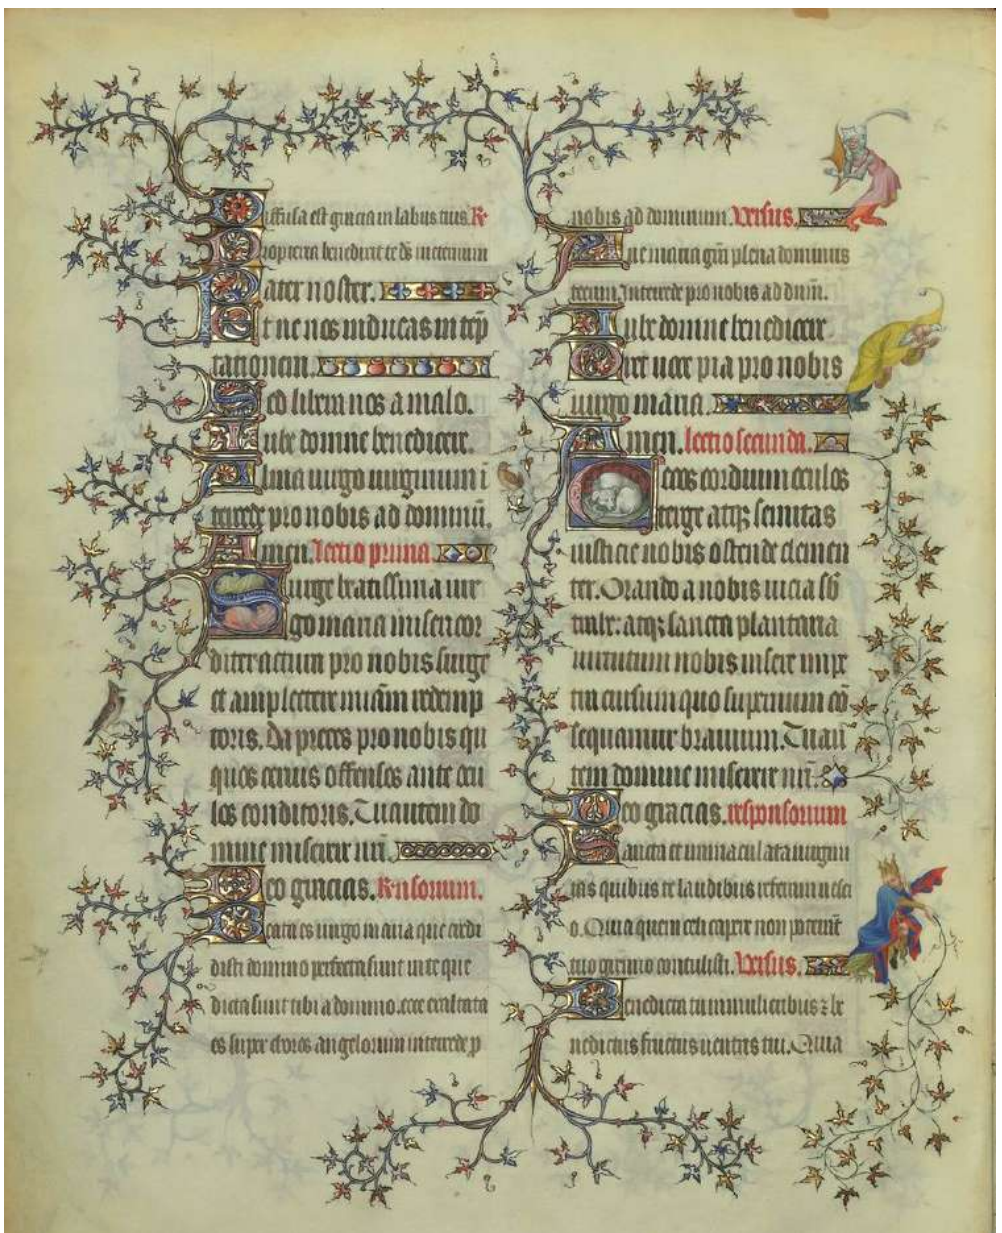 Diffusa est gracia in labiis tuis. R̃
Propterea benedixit te ds̃ in eternum
Pater noster.
Et ne nos inducas in tẽp
tationem.
Sed libera nos a malo.
Iube domne benedicere.
Alma uirgo uirginum ĩ
tercede pro nobis ad dominũ.
Amen. Lectio prima.
Surge beatissima uir
go maria misericor
diter actutum pro nobis surge
et amplectere
toris. Da preces pro nobis qui
quos cernis offensos ante ocu
los conditoris. Tu autem do
mine miserere nr̃i.
Deo gracias. Rñsorium.
Beata es uirgo maria que credi
disti domino perfecta sunt in te que
dicta sunt tibi a domino. ecce exaltata
es super choros angelorum intercede p
nobis ad dominum. Versus.
Aue maria grã plena dominus
tecum. Intercede pro nobis ad dnũm.
Iube domne benedicere.
Oret uoce pia pro nobis
uirgo maria.
Amen. lectio secunda.
Cecos cordium oculos
terge atqz semitas
iusticie nobis ostende clemen
ter. Orando a nobis uicia
atqz sancta plantaria
uirtutum nobis insere impe
tra cursum quo supernum cõ
sequamur brauium. Tu aũ
tem domine miserere nr̃i.
Deo gracias. responsorium
Sancta et immaculata uirgini
tas quibus te laudibus referam nesci
o. Quia quem celi capere non poterãt
tuo gremio contulisti. Versus.
Benedicta tu in mulieribus z be
nedictus fructus uentris tui. Quia